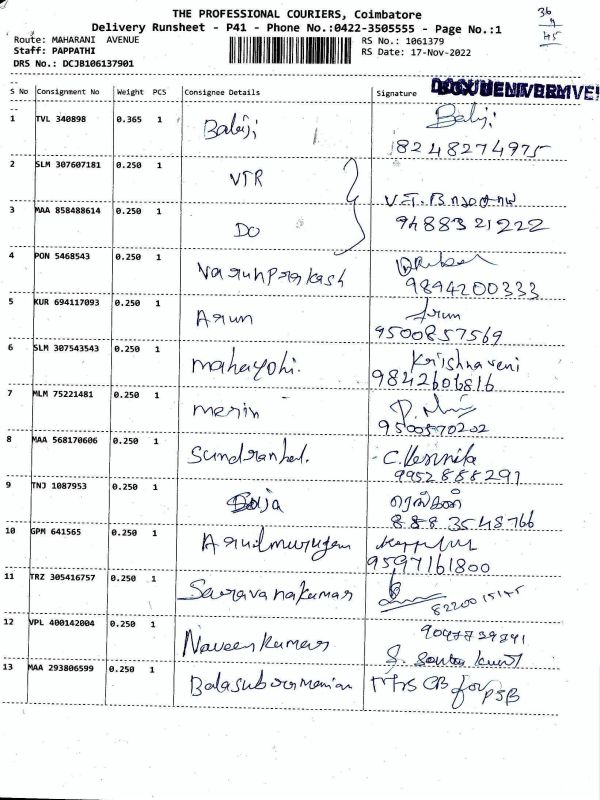 THE PROFESSIONAL COURIERS, Coimbatore
Delivery Runsheet - P41 - Phone No.:0422-3505555 - Page No.:1
36
9
45
Route: MAHARANI AVENUE
RS No.: 1061379
Staff: PAPPATHI
RS Date: 17-Nov-2022
DRS No.: DCJB106137901
S No Consignment No Weight PCS Consignee Details Signature
1 TVL 340898 0.365 1 Balaji Balaji
8248274975
2 SLM 307607181 0.250 1 VTR
3 MAA 858488614 0.250 1 DO 9488321222
4 PON 5468543 0.250 1 Varunprakash
9894200333
5 KUR 694117093 0.250 1 Arun Arun
9500857569
6 SLM 307543543 0.250 1 mahayohi. Krishnaveni
9842606816
7 MLM 75221481 0.250 1 merin
9500570202
8 MAA 568170606 0.250 1
9952888291
9 TNJ 1087953 0.250 1
8883548766
10 GPM 641565 0.250 1 Arulmurugan
9597161800
11 TRZ 305416757 0.250 1 Saravanakumar
12 VPL 400142004 0.250 1 Naveenkumar
13 MAA 293806599 0.250 1 Balasubramanian for PSB